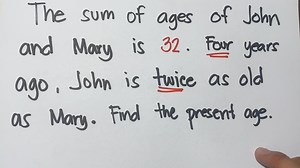 The sum of ages of John
and Mary is 32. Four years
ago, John is twice as old
as Mary. Find the present age.